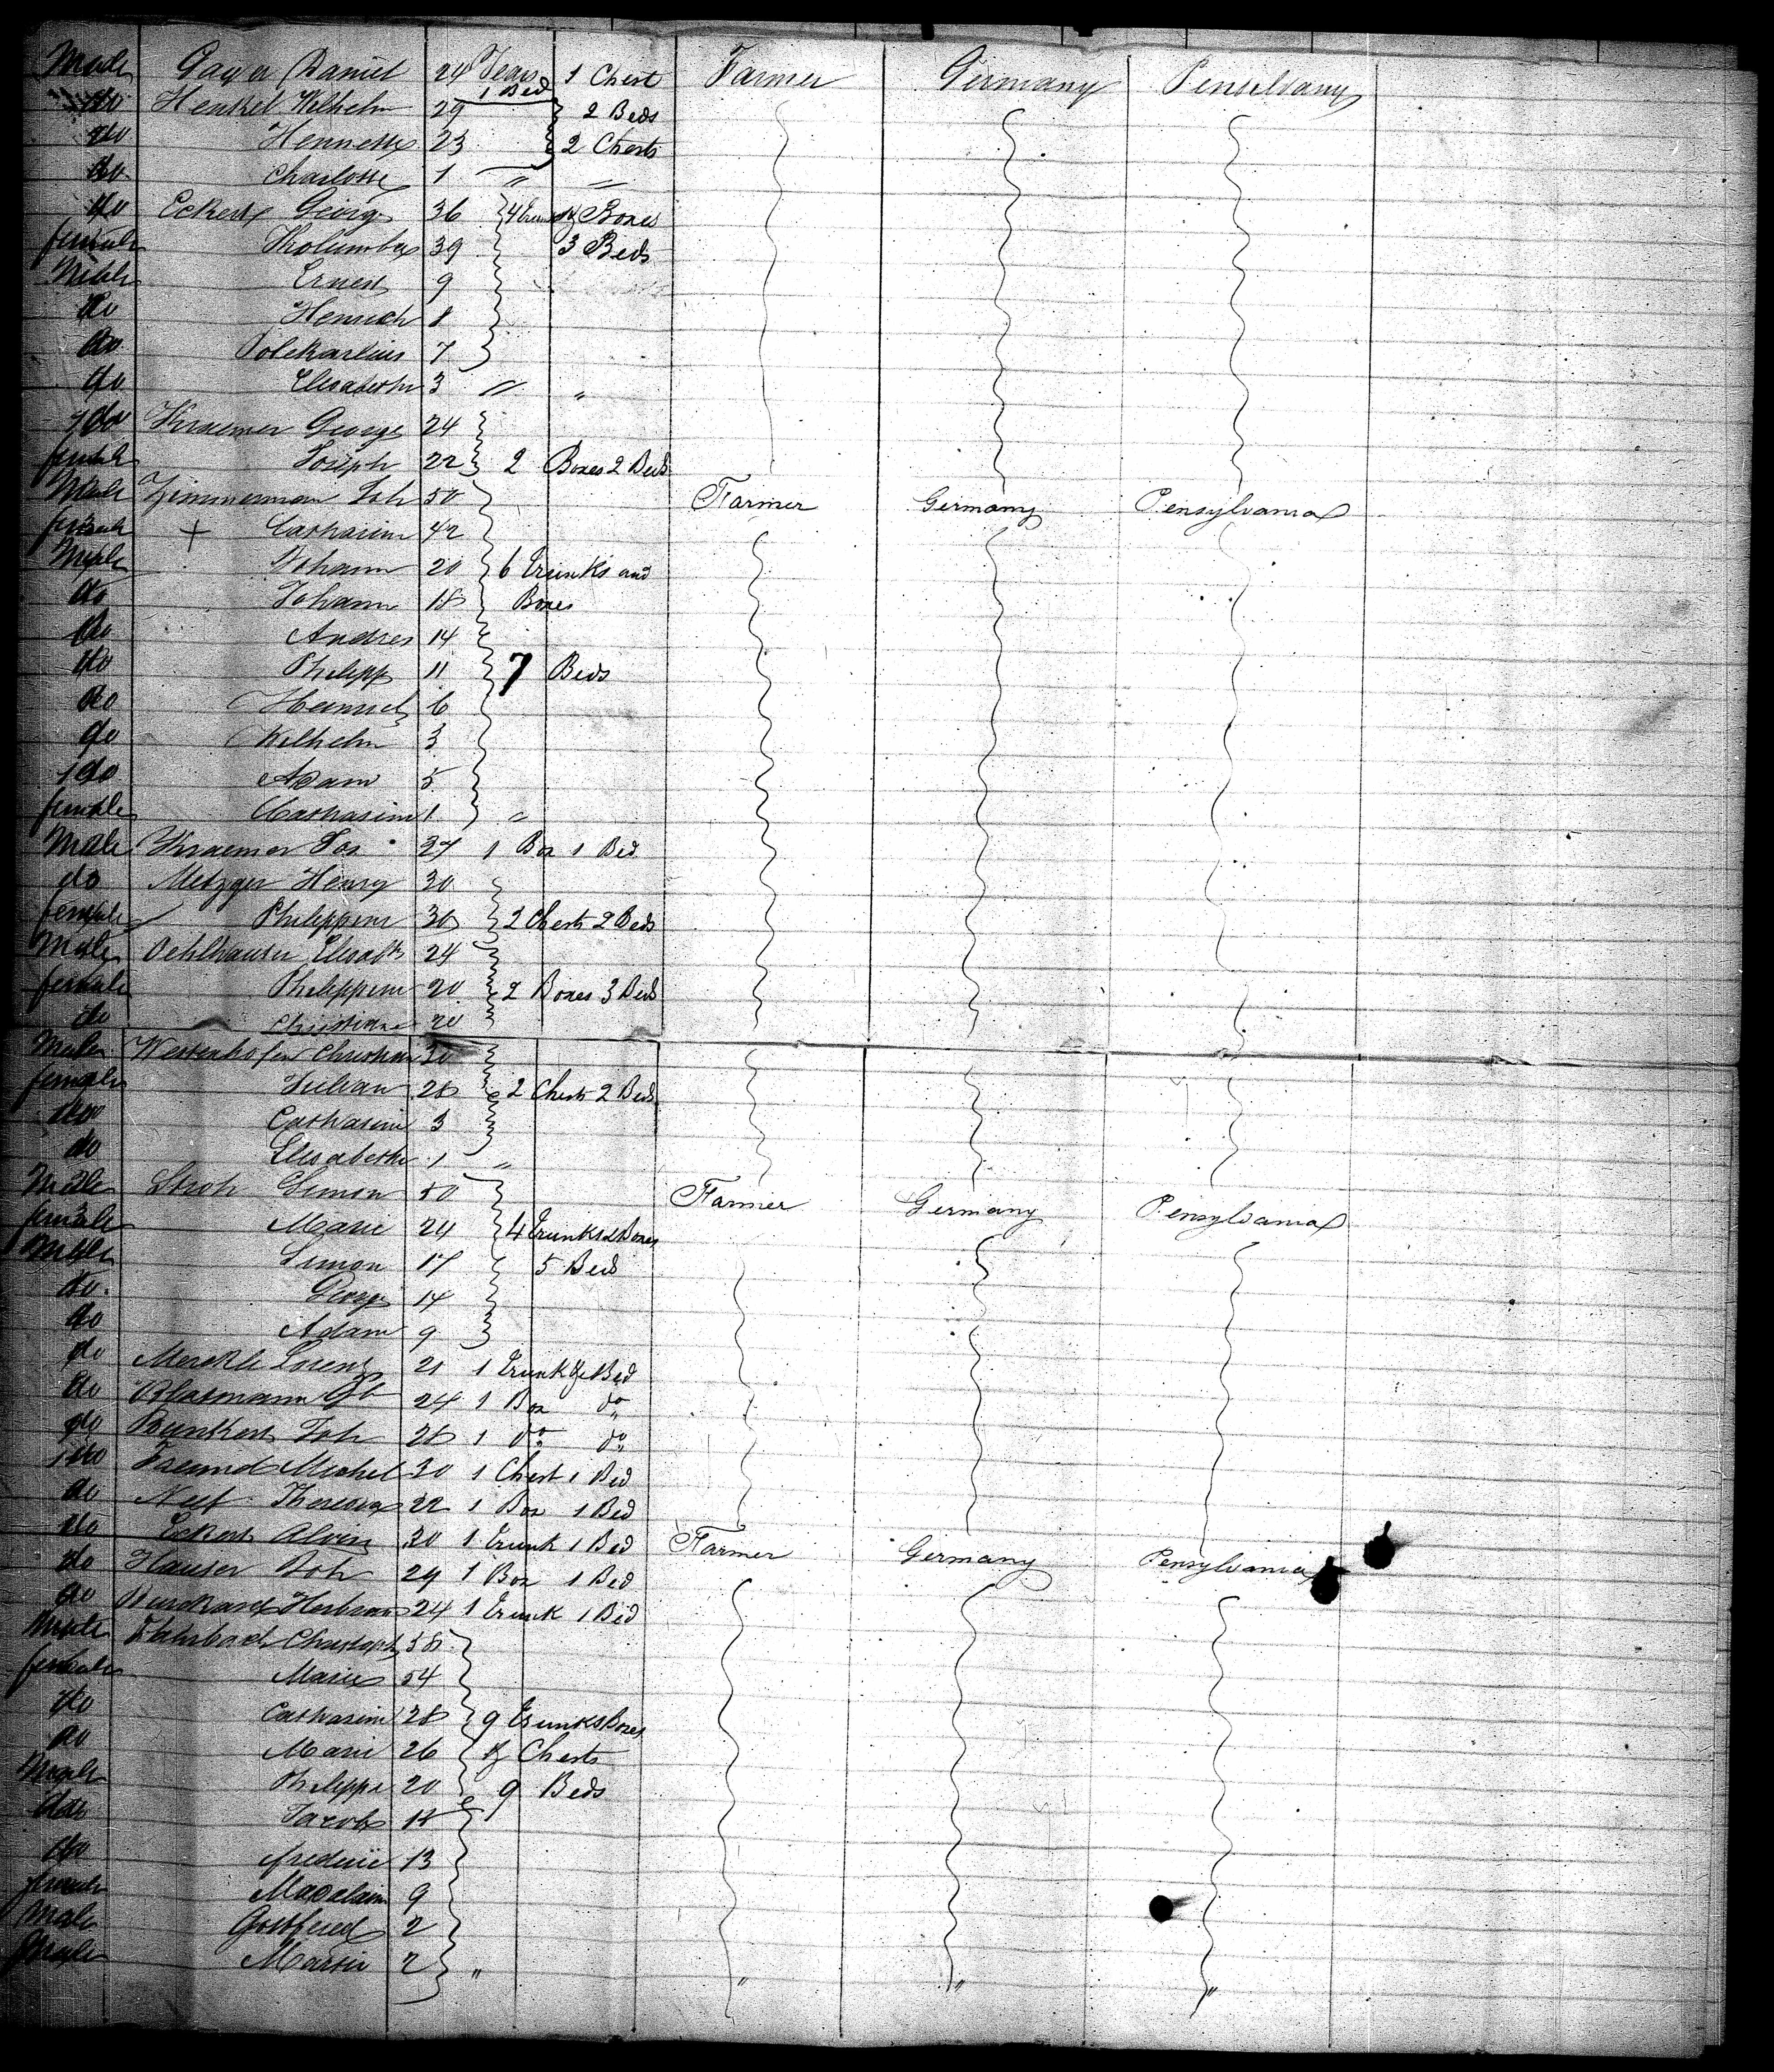 Male Daniel 24 Years 1 Bed 1 Chest Farmer Germany Penselvany
do Henkel Wilhelm 29 2 Beds
do 23 2 Chests
do Charlotte 1 " "
do Eckert Georg 36 4 Boxes
female Kolumba 39 3 Beds
Male Ernest 9
do Henrich 8
do Polekarlius 7
do Elisabeth 3 " "
do Kraemer George 24
female Joseph 22 2 Boxes 2 Beds
Male Zimmerman Joh 50 Farmer Germany Pensylvania
female + Catharine 42
Male Johann 20 6 Trunks and
do Johann 18 Boxes
do Andres 14
do Philipp 11 7 Beds
do 6
do Wilhelm 3
do Adam 5
female Catharine 1 "
Male Kraemer Jos 27 1 Box 1 Bed
do Metzger Henry 30
female Philippine 30 2 Chests 2 Beds
Male Oehlhauser 24
female Philippine 20 2 Boxes 3 Beds
do Christiane 20
Male Christian 30
female Julian 28 2 Chests 2 Beds
do Catharine 3
do Elisabethe 1 "
Male Stroh Simon 50 Farmer Germany Pensylvania
female Marie 24 4 Trunks & Boxes
Male Simon 17 5 Beds
do Georg 14
do Adam 9
do Lorenz 21 1 Trunk & Bed
do 24 1 Box do
do Joh 28 1 do do
do Freund Michel 30 1 Chest 1 Bed
do Neef Theresia 22 1 Box 1 Bed
do Eckert 30 1 Trunk 1 Bed Farmer Germany Pensylvania
do Hauser Joh 29 1 Box 1 Bed
do 24 1 Trunk 1 Bed
Male Christoph 58
female Marie 54
do Catharine 28 9 Trunks Boxes
do Marie 26 & Chests
Male Philippe 20 9 Beds
do Jacob 18
do frederic 13
female Madalain 9
Male Gottfried 2
Male 2 " " " "